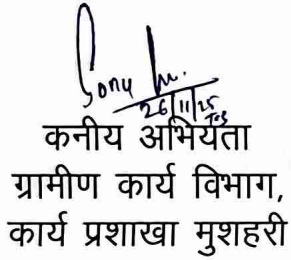 Sonu
26/11/25
कनीय अभियंता
ग्रामीण कार्य विभाग,
कार्य प्रशाखा मुशहरी